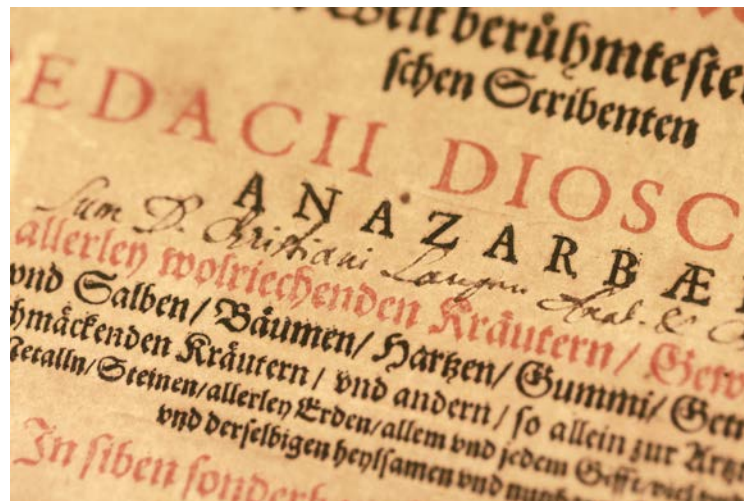 Welt berühmteste
schen Scribenten
EDACII DIOSC
ANAZARBÆ
Sum D. Christiani
allerley wolriechenden Kräutern / Gew
vnd Salben / Bäumen / Hartzen / Gummi / Getr
hmäckenden Kräutern / vnd andern / so allein zur Artz
Metalln / Steinen / allerley Erden / allem vnd jedem Gifft
vnd derselbigen heylsamen vnd
In siben sonder